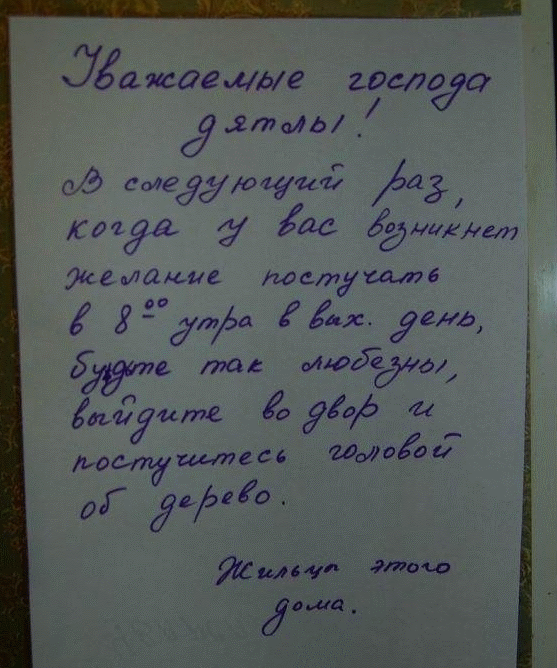 Уважаемые господа
дятлы!
В следующий раз,
когда у вас возникнет
желание постучать
в 8⁰⁰ утра в вых. день,
будьте так любезны,
выйдите во двор и
постучитесь головой
об дерево.
Жильцы этого
дома.